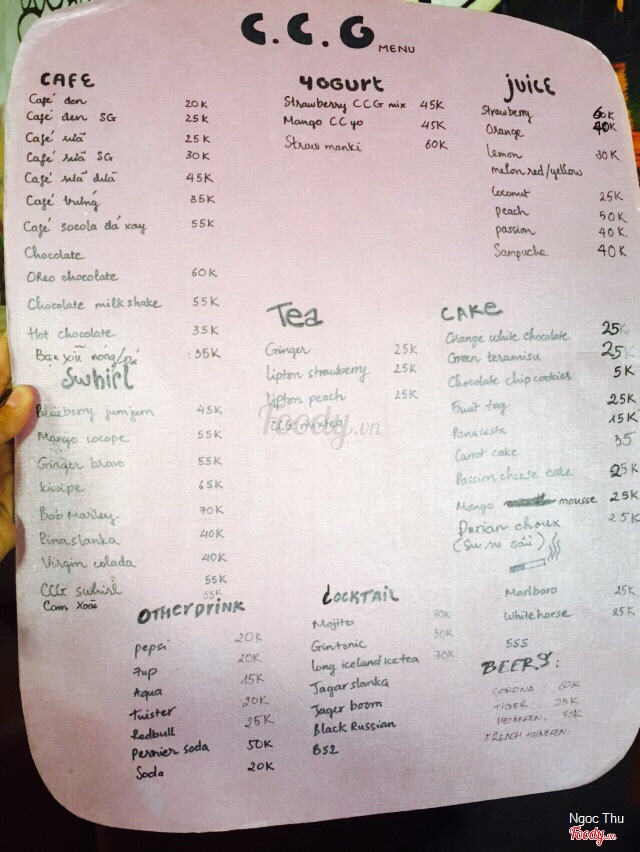 C.C.G MENU
CAFE
Café đen 20K
Café đen SG 25K
Café sữa 25K
Café sữa SG 30K
Café sữa dừa 45K
Café trứng 35K
Café socola đá xay 55K
Chocolate
Oreo chocolate 60K
Chocolate milkshake 55K
Hot chocolate 35K
Bạc xỉu nóng/đá : 35K
Swhirl
Blueberry jumjum 45K
Mango cocope 55K
Ginger bravo 55K
kiwipe 65K
Bob Marley 70K
Pinaslanka 40K
Virgin colada 40K
CCG swhirl 55K
Cam Xoài 55K
YOGURT
Strawberry CCG mix 45K
Mango CC yo 45K
Straw manki 60K
JUICE
Strawberry 60K
Orange 40K
Lemon 30K
melon red/yellow
Coconut 25K
peach 50K
passion 40K
Sampucha 40K
Tea
Ginger 25K
lipton strawberry 25K
lipton peach 25K
CCG mixtea
CAKE
Orange white chocolate 25K
Green teramisu 25K
Chocolate chip cookies 5K
Fruit tag 25K
Panacosta 15K
Carrot cake 35
Passion cheese cake 25K
Mango mousse 25K
Durian choux 25K
(Su ri sầu)
Marlboro 25K
White horse 25K
555
BEERS:
CORONA 60K
TIGER. 25K
HEINEKEN.
FRENCH HEINEKEN.
OTHER DRINK
pepsi 20K
7up 20K
Aqua 15K
Twister 20K
Redbull 25K
Perrier soda 50K
Soda 20K
COCKTAIL
Mojito 60K
Gintonic
long iceland icetea 70K
Jagarslanka
Jager boom
Black Russian
B52
Foody.vn
Ngoc Thu
Foody.vn